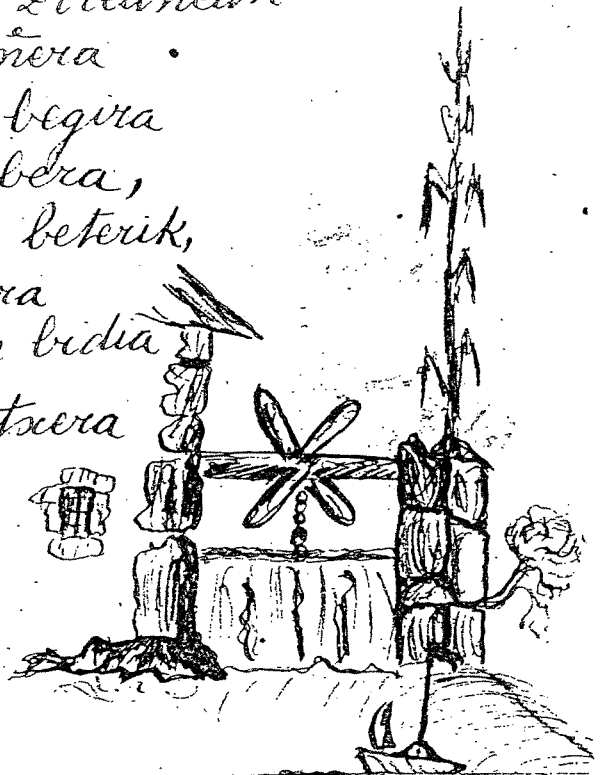 begira
bera,
beterik,
ra
bidia
txera